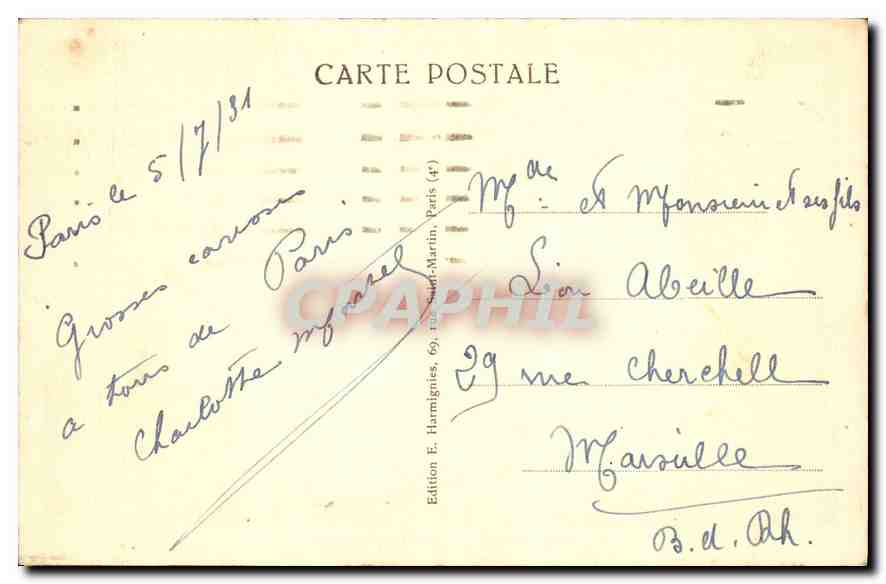 CARTE POSTALE
Paris le 5/7/31
Grosses caresses
a tous de Paris
Charlotte Marcel
Edition E. Harmignies, 69, rue Saint-Martin, Paris (4e)
Mde et Monsieur et ses fils
Léon Abeille
29 rue Cherchell
Marseille
B. d. Rh.
CPAPHIL